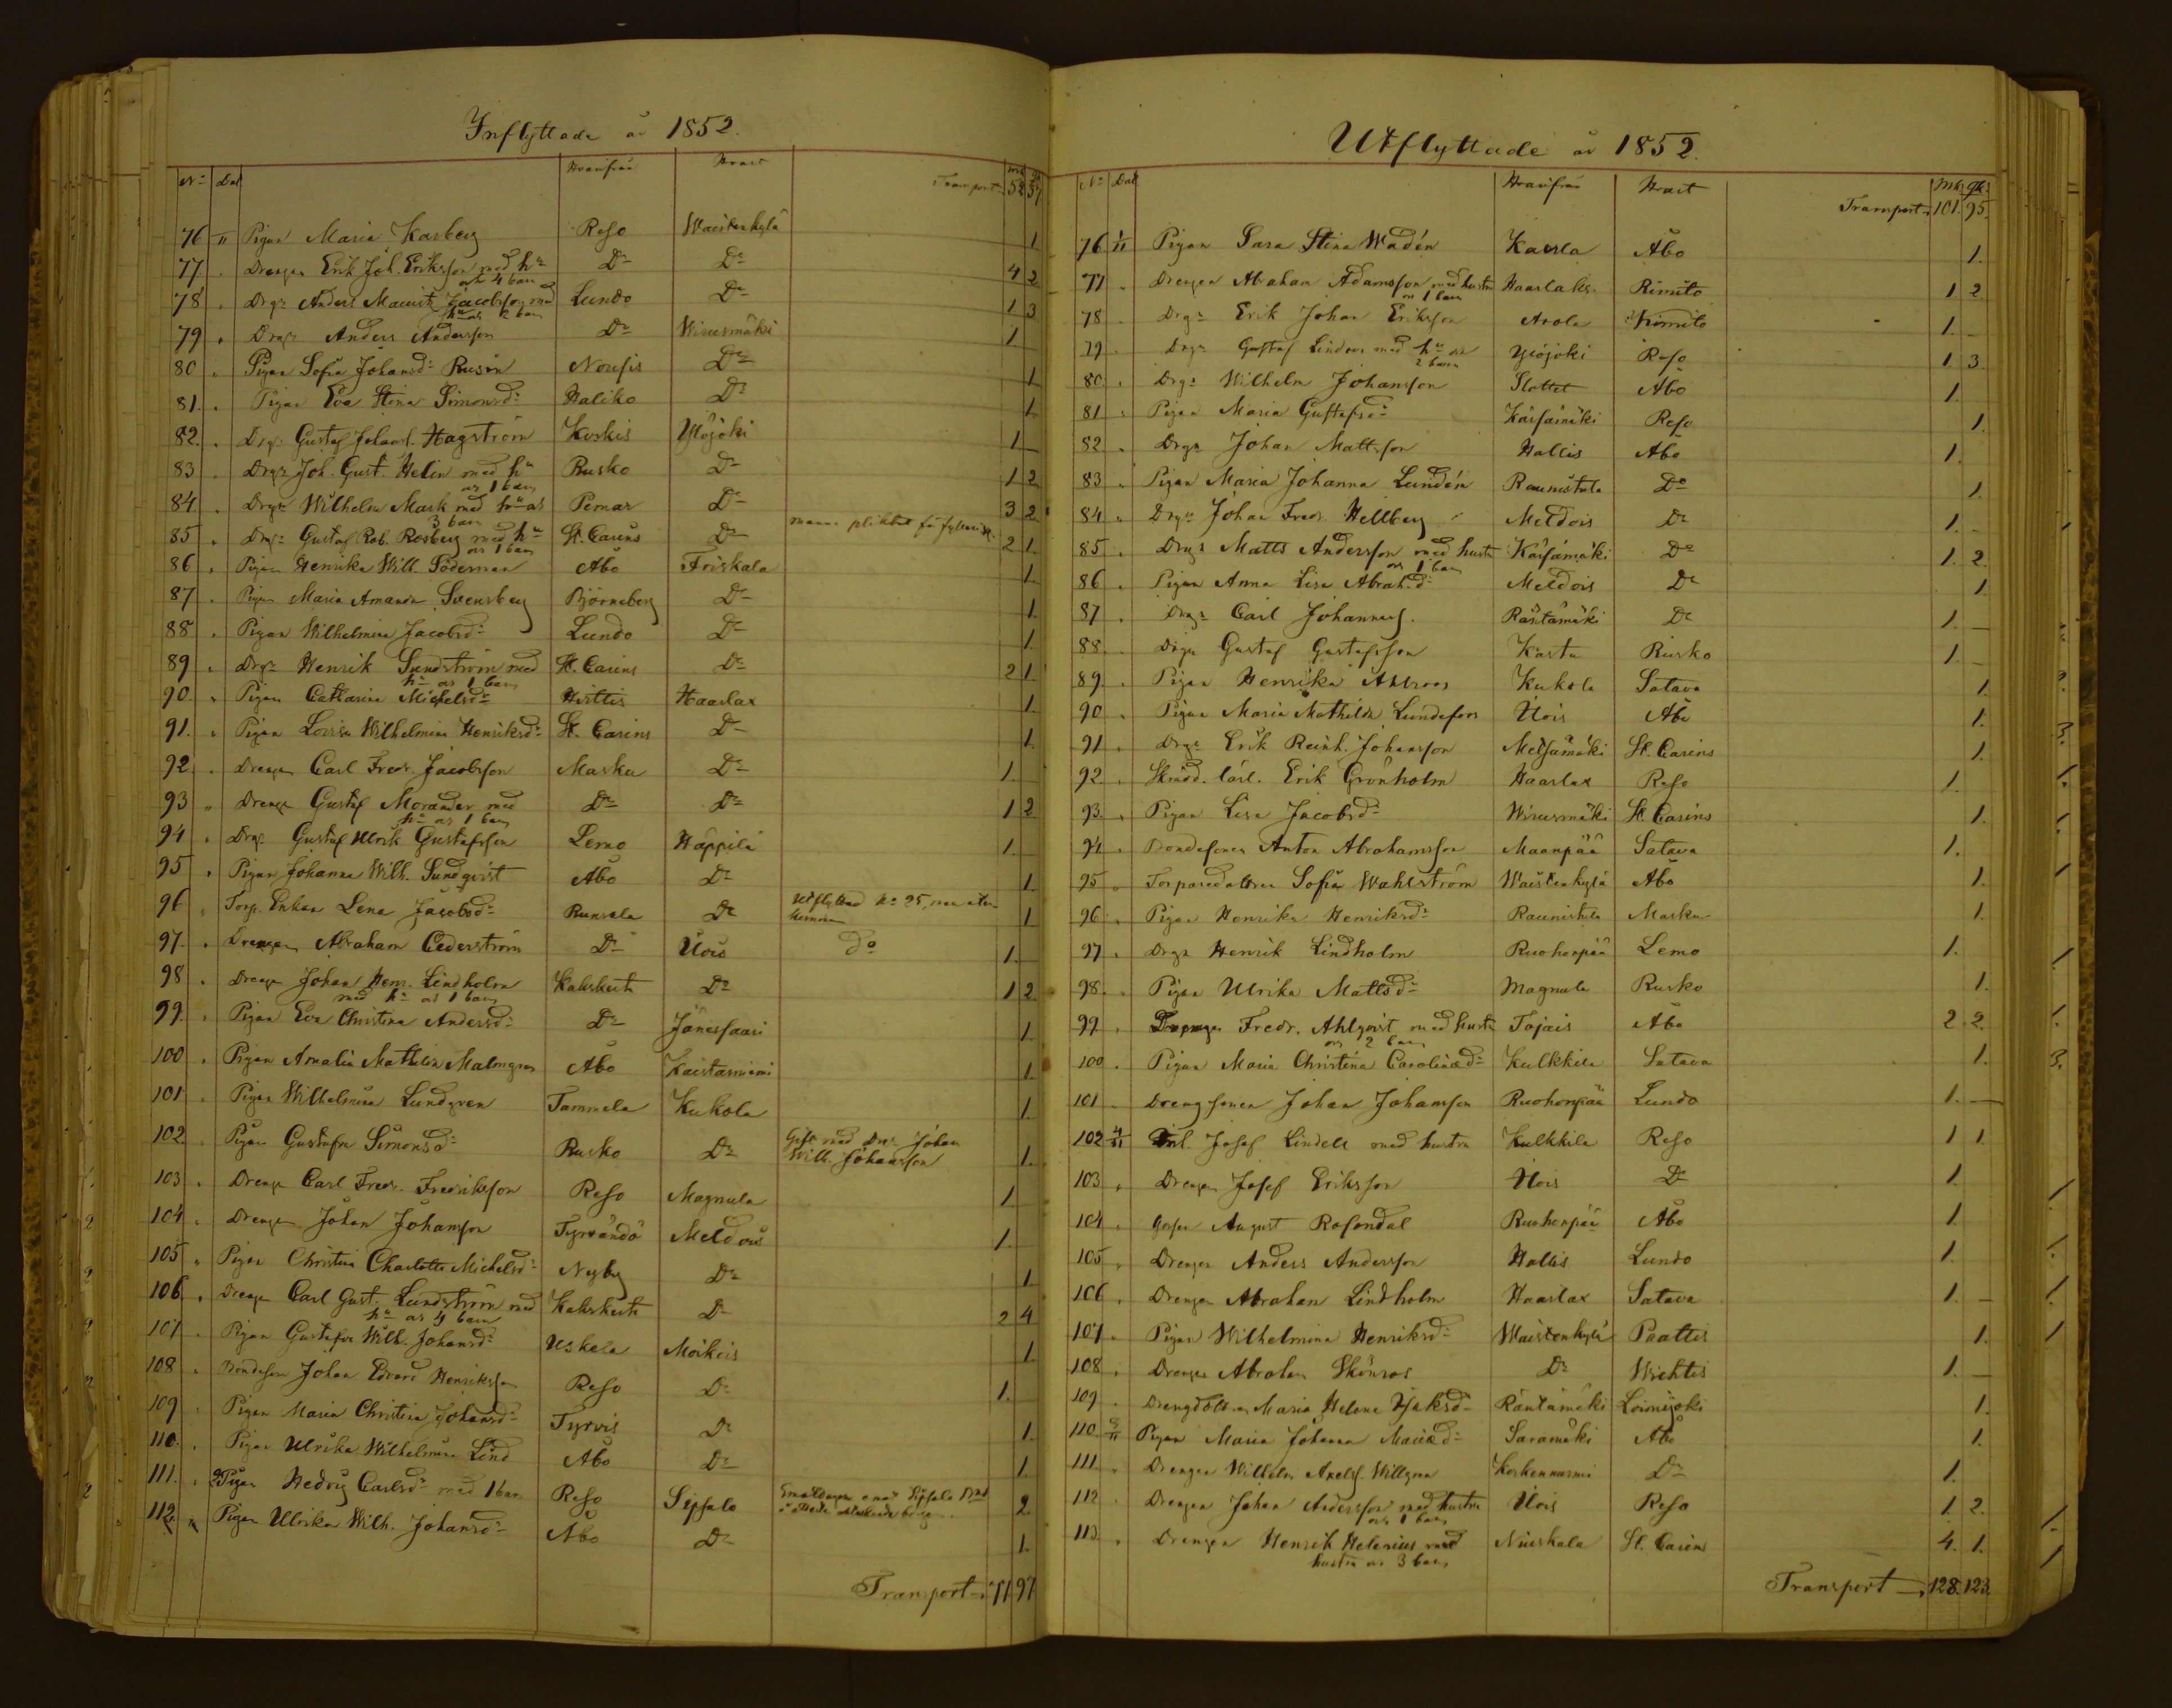 Inflyttade år 1852.
No Dat Hvarifrån Hvart Transport 52 57
76 11 Pigan Maria Karberg Reso Waistenkylä 1
77 " Drengen Erik Joh. Eriksson med hu Do Do 4 2
och 4 barn
78 " Drgn Anders Mauritz Jacobsson med Lundo Do 1 3
hu o 2 barn
79 " Drgn Anders Andersson Do Wirusmäki 1
80 " Pigan Sofia Johansdr Rusén Nousis Do 1
81. " Pigan Eva Stina Simonsdr Haliko Do 1
82. " Drgn Gustaf Johans. Hagström Koskis Ylöjoki 1
83 " Drgn Joh. Gust. Helin med hu Rusko Do 1 2
o 1 barn
84 " Drgn Wilhelm Mark med hu o Pemar Do 3 2
3 barn
85 " Drgn Gustaf Rob. Rosberg med hu St. Carins Do 2 1
o 1 barn
86 " Pigan Henrika Will. Söderman Åbo Friskala 1
87 " Pigan Maria Amanda Svensberg Björneborg Do 1
88 " Pigan Wilhelmina Jacobsdr Lundo Do 1
89 " Drgn Henrik Sundström med St. Carins Do 2 1
hu o 1 barn
90. " Pigan Catharina Michelsdr Hvittis Haarlax 1
91. " Pigan Lovisa Wilhelmina Henriksdr St. Carins Do 1
92 " Drengen Carl Fredr. Jacobsson Masku Do 1
93 " Drengen Gustaf Morander med Do Do 1 2
hu o 1 barn
94 " Drgn Gustaf Ulrik Gustafsson Lemo Häppilä 1
95 " Pigan Johanna Wilh. Sundqvist Åbo Do 1
96 " Torp. Enkan Lena Jacobsdr Runsala Do Utflyttad No 25, 1
97. " Drengen Abraham Cederström Do Uois do 1
98 " Drengen Johan Henr. Lindholm Kakskerta Do 1 2
med hu o 1 barn
99. " Pigan Eva Christina Andersdr Do Jänessaari 1
100 " Pigan Amalia Mathilda Malmgren Åbo Kaistarniemi 1
101 " Pigan Wilhelmina Lundgren Tammela Kukola 1
102 " Pigan Gustafva Simonsdr Rusko Do Gift med Drn Johan 1
Will. Johansson
103 " Drengen Carl Fredr. Fredriksson Reso Magnula 1
104 " Drengen Johan Johansson Tyrvändö Meldois 1.
105 " Pigan Christina Charlotta Michelsdr Nyby Do 1
106 " Drengen Carl Gust. Lundström med Kakskerta Do 2 4
hu o 4 barn
107 " Pigan Gustafva Wilh. Johansdr Uskela Moikois 1
108 " Bondeson Johan Edvard Henriksson Reso Do 1.
109 " Pigan Maria Christina Johansdr Tyrvis Do 1
110. " Pigan Ulrika Wilhelmina Lind Åbo Do 1.
111. " Pigan Hedvig Carlsdr med 1 barn Reso Sipsalo 2
112. " Pigan Ulrika Wilh. Johansdr Åbo Do 1.
Transport 71 97
Utflyttade år 1852.
No Dat Hvarifrån Hvart Mk. Qk.
Transport 101. 95.
76 1/11 Pigan Sara Stina Wadén Kaerla Åbo 1.
77 " Drengen Abraham Adamsson med hustru Haarlaks Rimito 1 2
o 1 barn
78 " Drgn Erik Johan Eriksson Arola Kimito 1. -
79 " Drgn Gustaf Lindros med hu o Ylöjoki Reso 1 3
2 barn
80 " Drgn Wilhelm Johansson Slottet Åbo 1.
81 " Pigan Maria Gustafsdr Kärsämäki Reso 1
82 " Drgn Johan Mattsson Hallis Åbo 1.
83 " Pigan Maria Johanna Lundén Raunistula Do 1.
84 " Drgn Johan Fredr. Hellberg Meldois Do 1. -
85 " Drgn Matts Andersson med hustru Kärsämäki Do 1. 2.
o 1 barn
86 " Pigan Anna Lisa Abrah.dr Meldois Do 1
87 " Drgn Carl Johannes. Räntämäki Do 1. -
88 " Drgn Gustaf Gustafsson Kastu Rusko 1. -
89 " Pigan Henrika Ahlroos Kukola Satava 1.
90 " Pigan Maria Mathilda Lundefors Uois Åbo 1.
91 " Drgn Erik Reinh. Johansson Metsämäki St. Carins 1.
92 " Skrädd. lärl. Erik Grönholm Haarlax Reso 1.
93 " Pigan Lisa Jacobsdr Wirusmäki St. Carins 1.
94 " Bondesonen Anton Abrahamsson Maanpää Satava 1.
95 " Torparedottren Sofia Wahlström Waistenkylä Åbo 1.
96 " Pigan Henrika Henriksdr Raunistula Masku 1.
97 " Drgn Henrik Lindholm Ruohonpää Lemo 1.
98 " Pigan Ulrika Mattsdr Magnula Rusko 1.
99 " Drengen Fredr. Ahlqvist med hustru Tojais Åbo 2. 2.
o 2 barn
100 " Pigan Maria Christina Carolinædr Kulkkila Satava 1.
101 " Drengsonen Johan Johansson Ruohonpää Lundo 1. -
102 4/11 Josef Lindell med hustru Kulkkila Reso 1 1
103 " Drengen Josef Eriksson Uois Do 1
104 " August Rosendal Ruohonpää Åbo 1.
105 " Drengen Anders Andersson Hallis Lundo 1.
106 " Drengen Abraham Lindholm Haarlax Satava 1. -
107 " Pigan Wilhelmina Henriksdr Waistenkylä Paattis 1.
108 " Drengen Abraham Skönroos Do Wichtis 1. -
109 " Drengdottren Maria Helena Isaksdr Räntämäki Loimijoki 1.
110 Pigan Maria Johanna Mariædr Saramäki Åbo 1.
111 " Drengen Wilhelm Axels. Willgren Koskennurmi Do 1.
112 " Drengen Johan Andersson med hustru Uois Reso 1. 2.
o 1 barn
113. " Drengen Henrik Helenius med Niuskala St. Carins 4. 1.
hustru o 3 barn
Transport 128. 123.